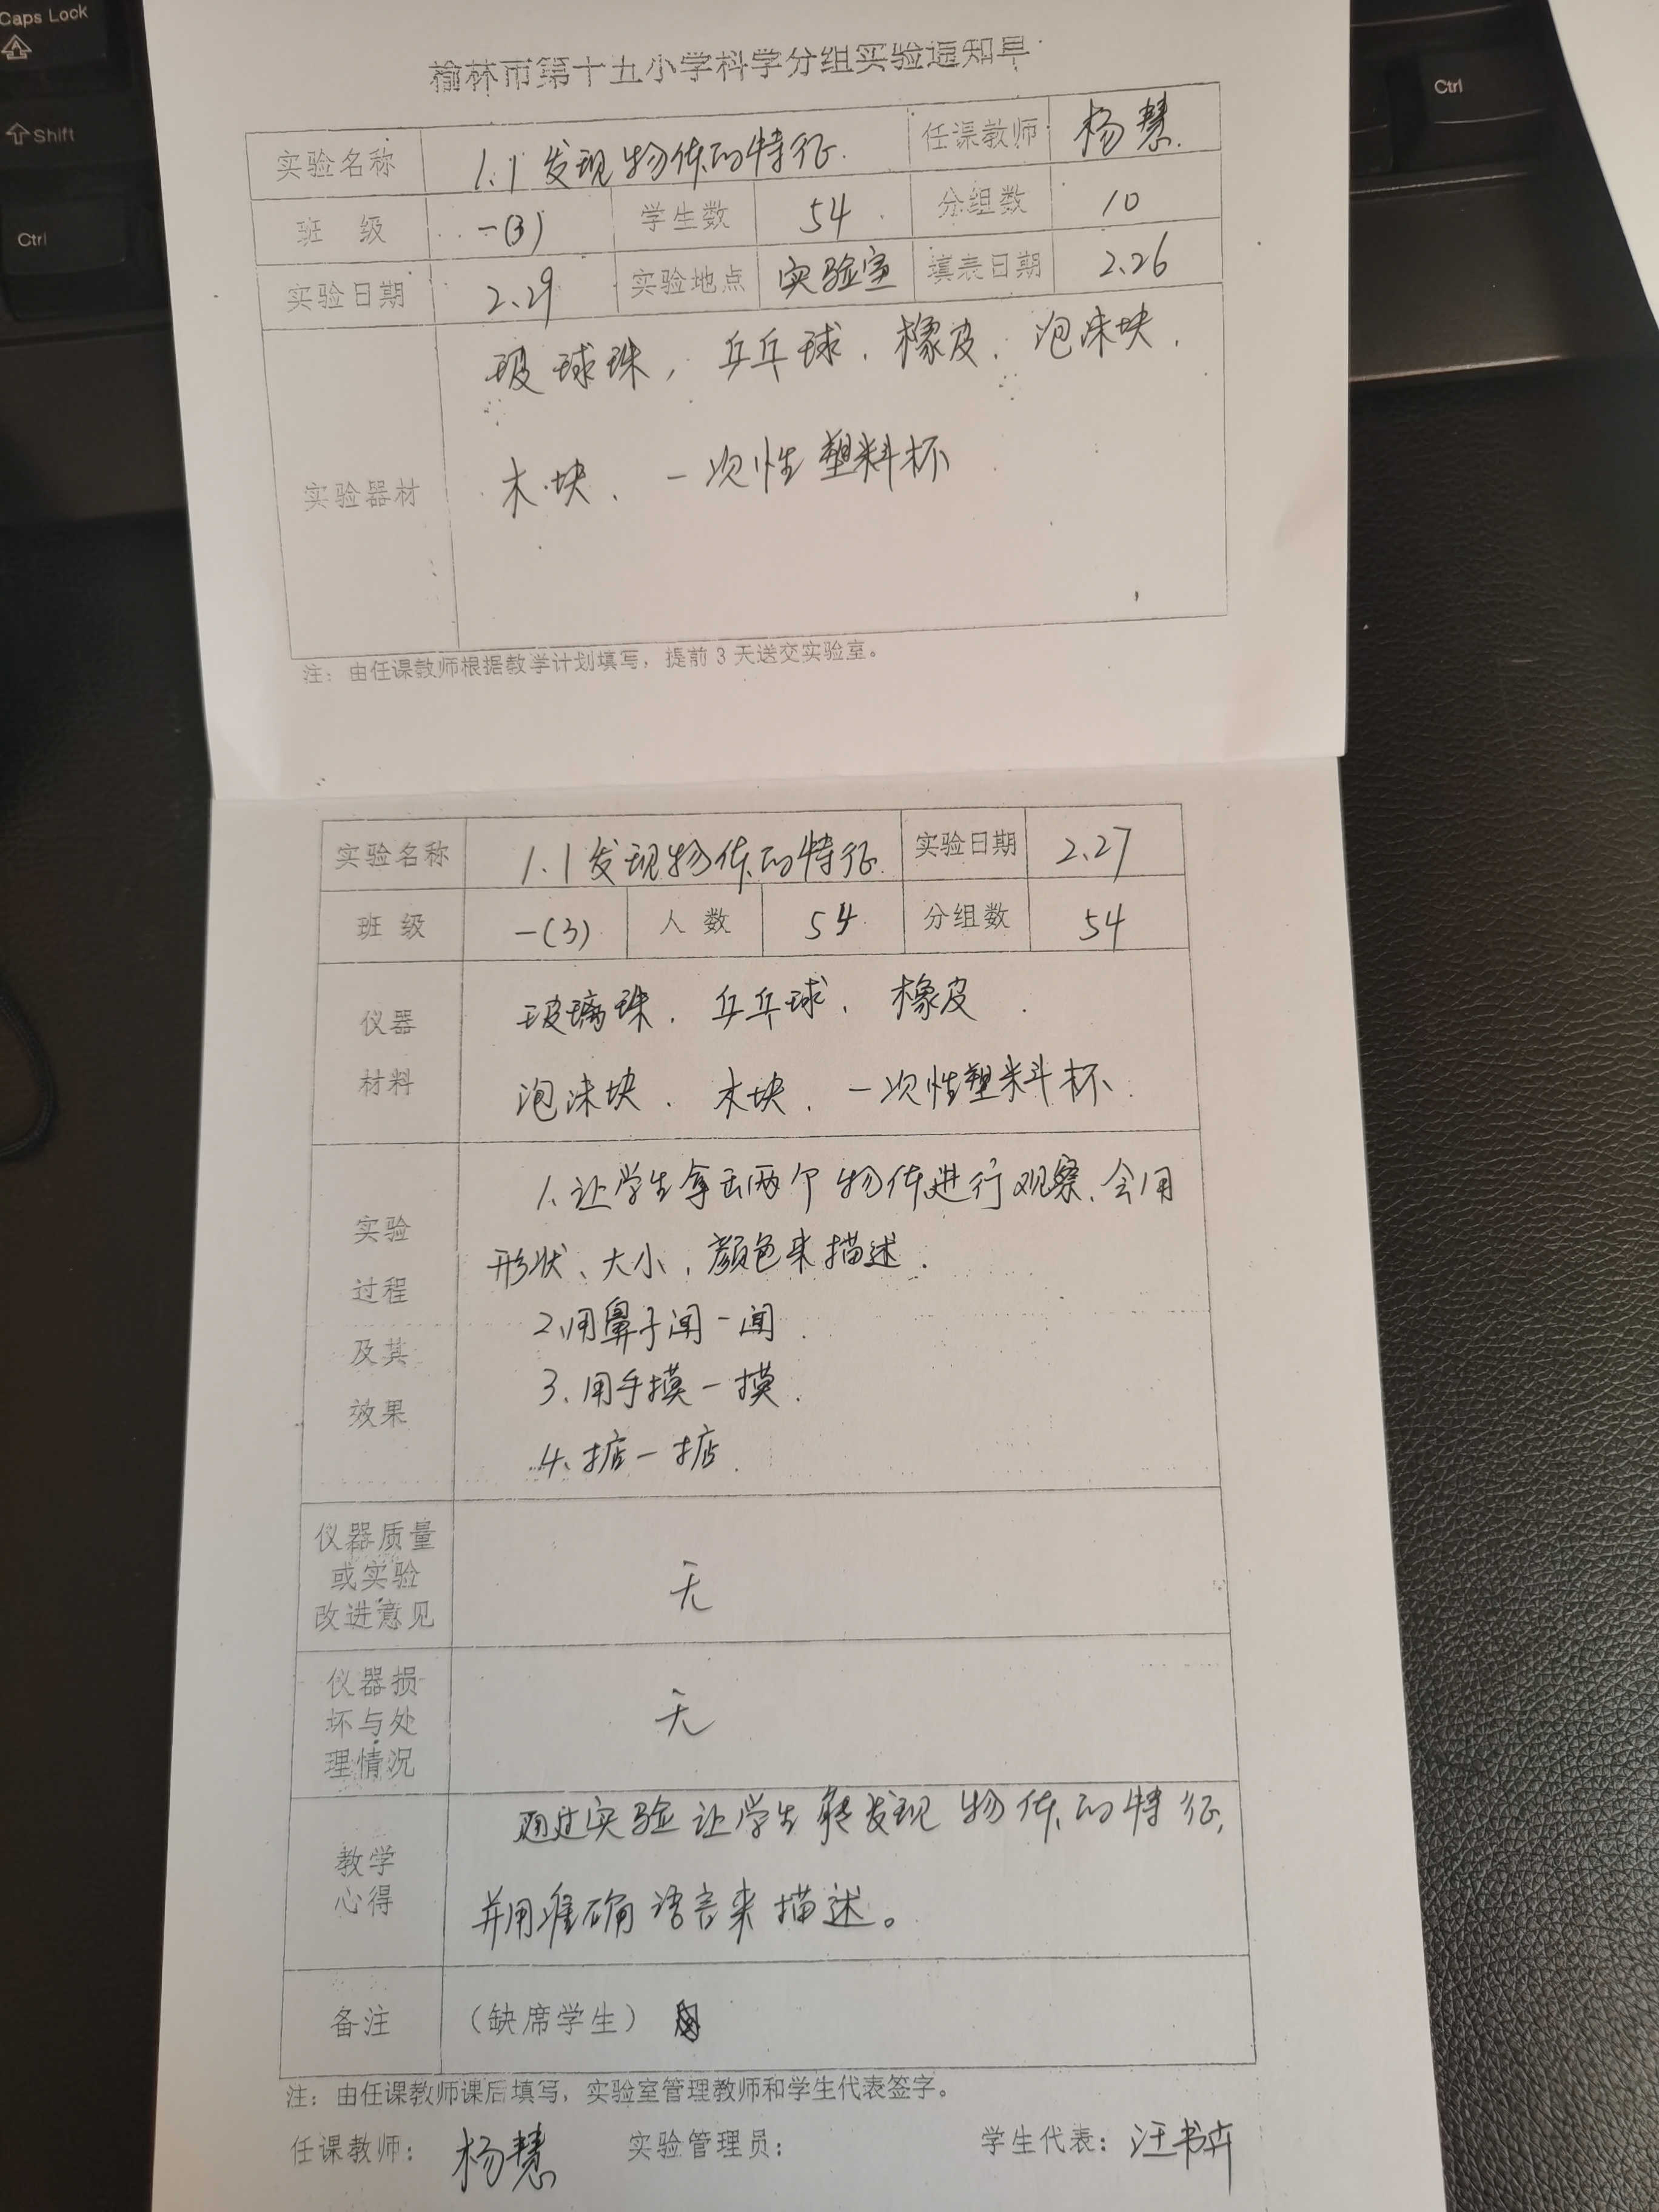 Caps Lock
Shift
Ctrl
Ctrl
榆林市第十五小学科学分组实验通知单
实验名称 1.1发现物体的特征. 任课教师 杨慧.
班 级 一(3) 学生数 54 分组数 10
实验日期 2.29 实验地点 实验室 填表日期 2.26
实验器材 玻球珠, 乒乓球、橡皮、泡沫块、
木块、一次性塑料杯
注: 由任课教师根据教学计划填写, 提前3天送交实验室。
实验名称 1.1发现物体的特征. 实验日期 2.27
班 级 一(3) 人 数 54 分组数 54
仪器 玻璃珠、乒乓球、橡皮
材料 泡沫块、木块、一次性塑料杯.
1.让学生拿出两个物体进行观察、会用
实验
形状、大小、颜色来描述.
过程
2.用鼻子闻一闻.
及其
3.用手摸一摸.
效果
4.掂一掂.
仪器质量
或实验 无
改进意见
仪器损
坏与处 无
理情况
通过实验让学生能发现物体的特征,
教学
心得 并用准确语言来描述。
备注 (缺席学生)
注: 由任课教师课后填写, 实验室管理教师和学生代表签字。
任课教师: 杨慧 实验管理员: 学生代表: 汪书卉